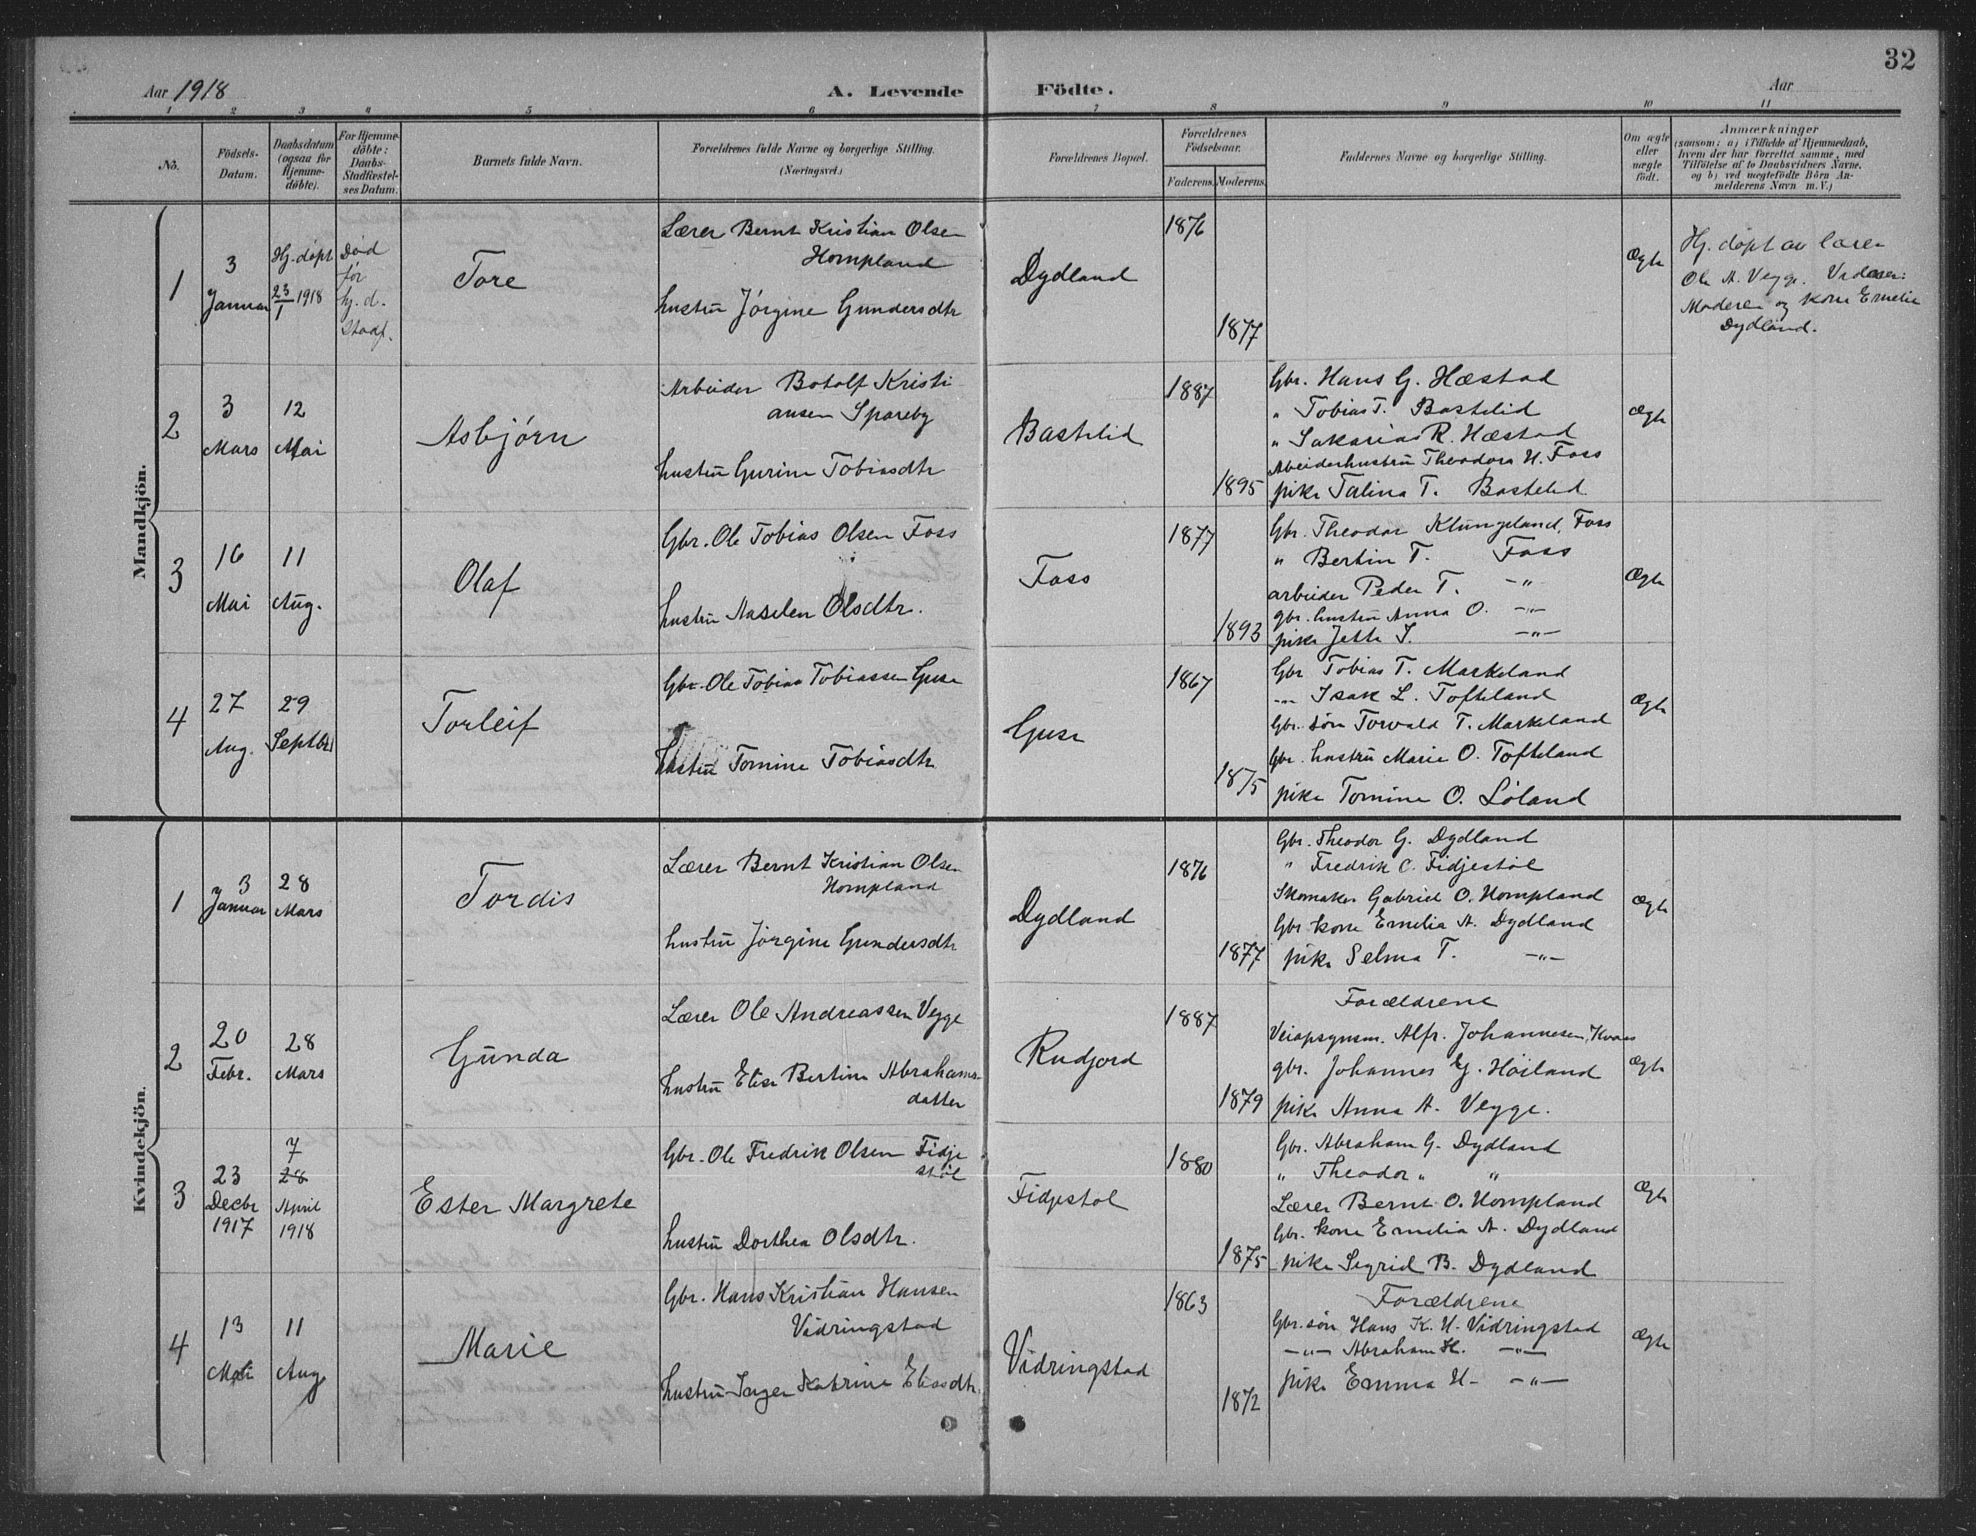 32
Aar 1918
A. Levende Födte.
Aar
1 2 3 4 5 6 7 8 9 10 11
No.
Födsels-
Datum.
Daabsdatum
(ogsaa for
Hjemme-
döbte).
For Hjemme-
döbte:
Daabs-
Stadfæstel-
ses Datum.
Barnets fulde Navn.
Forældrenes fulde Navne og borgerlige Stilling.
(Næringsvei.)
Forældrenes Bopæl.
Forældrenes
Födselsaar.
Faderens. Moderens.
Faddernes Navne og borgerlige Stilling.
Om ægte
eller
uægte
födt.
Anmærkninger
(saasom: a) i Tilfælde af Hjemmedaab,
hvem der har forrettet samme, med
Tilföielse af to Daabsvidners Navne.
og b) ved uægtefödte Börn An-
melderens Navn m. V.)
Mandkjön.
1
3
Januar
Hj. döpt
23/1 1918
Död
før
hj. d.
Stadf.
Tore
Lærer Bernt Kristian Olsen
Hompland
hustru Jörgine Gundersdtr
Dydland
1876
1877
Ægte
Hj. döpt av lærer
Ole A. Vegge.
Moderen og kone Emelie
Dydland.
2
3
Mars
12
Mai
Asbjörn
Arbeider Botolf Kristi
ansen Spareby
hustru Gurine Tobiasdtr
Bastelid
1887
1895
Gbr. Hans G. Hæstad
" Tobias T. Bastelid
" Sakarias R. Hæstad
Abeiderhustru Theodora H. Foss
pike Talina T. Bastelid
Ægte
3
16
Mai
11
Aug.
Olaf
Gbr. Ole Tobias Olsen Foss
hustru Aaselen Olsdtr.
Foss
1877
1893
Gbr. Theodor Klungeland, Foss
" Bertin T. Foss
arbeider Peder T. -"-
gbr. hustru Anna O. -"-
pike Jette S. -"-
Ægte
4
27
Aug.
29
Septbr
Torleif
Gbr. Ole Tobias Tobiassen Guse
hustru Tomine Tobiasdtr
Guse
1867
1875
Gbr Tobias T. Markeland
-"- Isak L. Tofteland
Gbr. søn Torvald T. Markeland
Gbr. hustru Marie O. Tofteland
pike Tomine O. Löland
Ægte
Kvindekjön.
1
3
Januar
28
Mars
Tordis
Lærer Bernt Kristian Olsen
Hompland
hustru Jörgine Gundersdtr
Dydland
1876
1877
Gbr. Theodor G. Dydland
" Fredrik C. Fidjestöl
Skomaker Gabriel O. Hompland
Gbr kone Emelia A. Dydland
pike Selma T. -"-
Ægte
2
20
Febr.
28
Mars
Gunda
Lærer Ole Andreassen Vegge
hustru Elise Bertine Abrahams-
datter
Rudjord
1887
1879
Forældrene
Veiopsynsm. Alfr. Johannesen, Kvaas
gbr. Johannes G. Höiland
pike Anna A. Vegge.
Ægte
3
23
Decbr
1917
7
28
April
1918
Ester Margrete
Gbr. Ole Fredrik Olsen Fidje
stöl
hustru Dorthea Olsdtr.
Fidjestöl
1880
1875
Gbr. Abraham G. Dydland
" Theodor " "
Lærer Bernt O. Hompland
Gbr. kone Emelia A. Dydland
pike Sigrid B. Dydland
Ægte
4
13
Mai
11
Aug
Marie
Gbr. Hans Kristian Hansen
Vidringstad
hustru Inger Katrine Eliasdtr.
Vidringstad
1863
1872
Forældrene
Gbr. søn Hans K. H. Vidringstad
-"- Abraham H. -"-
pike Emma H. -"-
Ægte